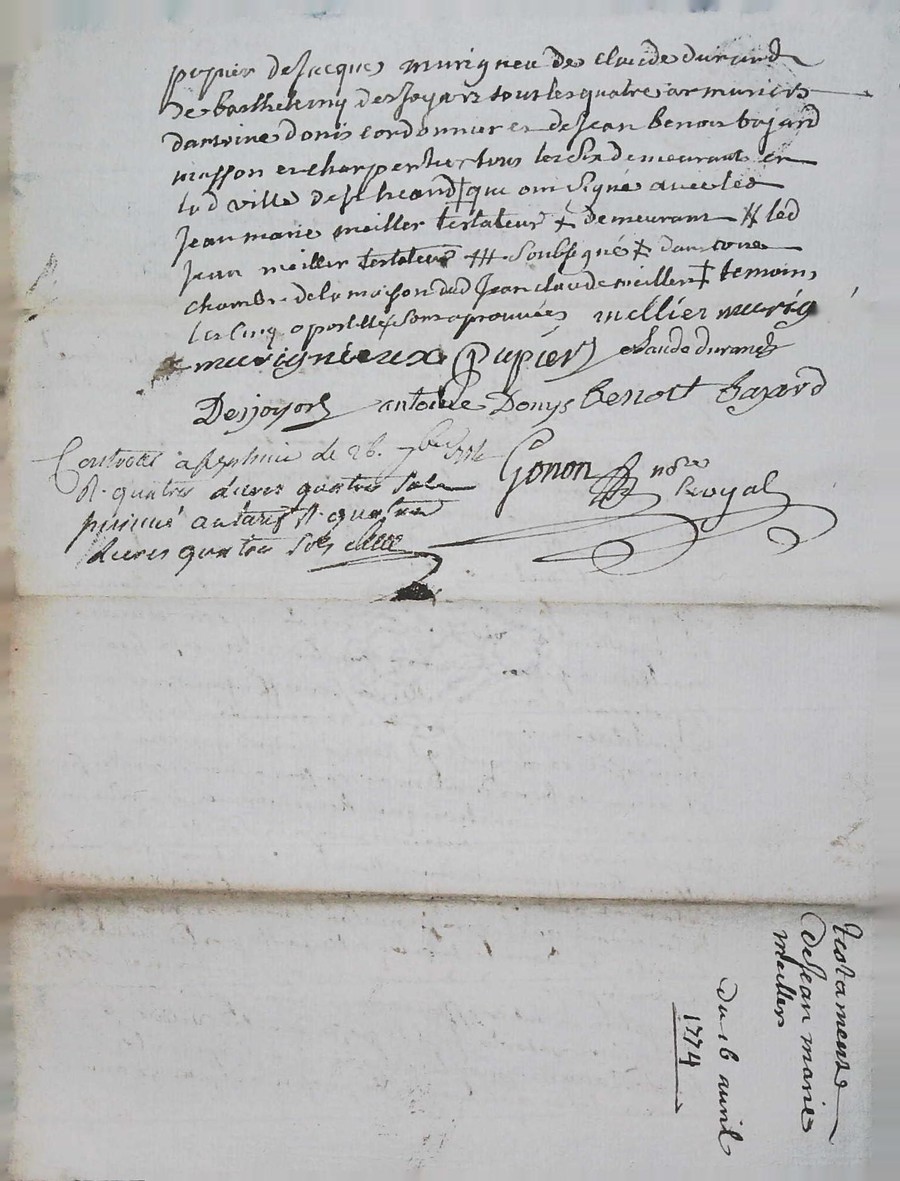 pupier de Jacques murigneu de claude durand
de barthelemy desjoyarz tous les quatre armuriers
dantoine donis cordonnier et de Jean Benoit bajard
masson et charpentier tous les six demeurant en
lad ville de st heand † que ont signé avec led
Jean marie meiller testateur ‡ demeurant # led
Jean meiller testateur ⧻ soubsigné ‡ dans une
chambre de la maison dud Jean claude meiller ‡ temoins
les cinq apostilles sont aprouvées mellier murig
murignieux Pupier claude durand
Desjoyos antoine Donys Benoit Bajard
Gonon nore Royal
Controllé a st le 26. 7bre
R. quatre livres quatre sols
quatre
livres quatre sols
testament
de Jean marie
meiller
du 16 avril
1774